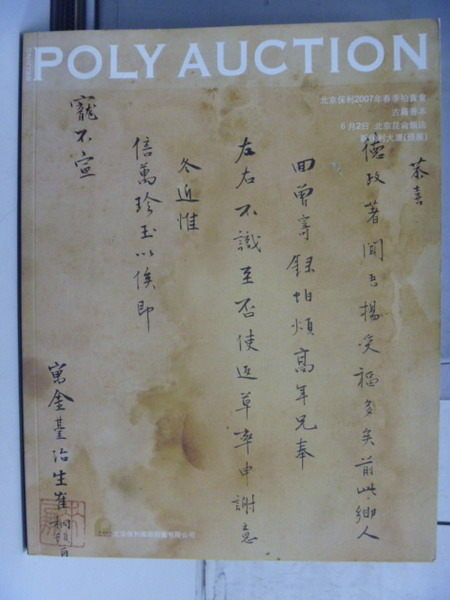 POLY AUCTION
北京保利2007年春季拍賣會
古籍善本
6月2日 北京昆侖飯店
新保利大廈(預展)
恭喜
德政著聞吾揚受福多矣前此鄉人
回曾寄錄怕煩高年兄奉
左右不識至否使返草率申謝意
冬近惟
信萬珍玉以俟即
寵不宣
寓金臺治生崔桐頓首
北京保利國際拍賣有限公司